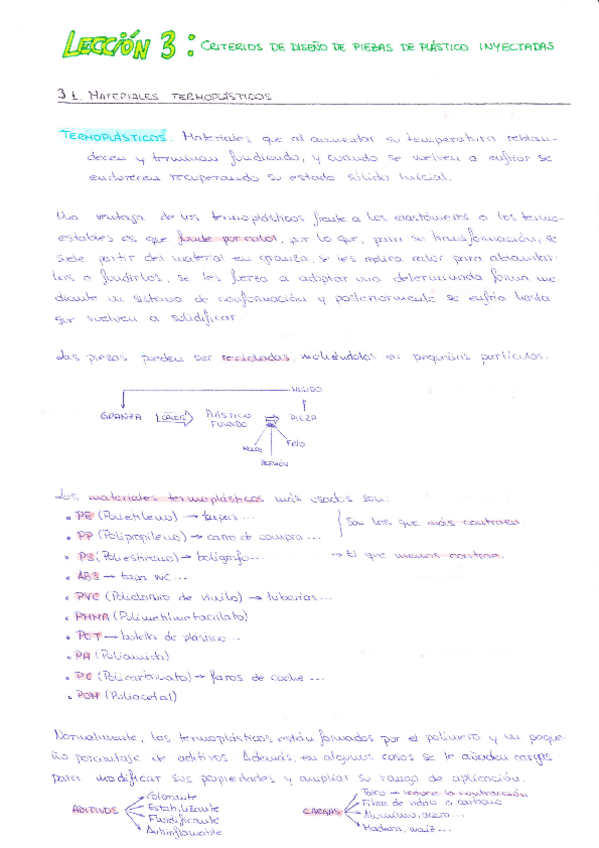 LECCIÓN 3: CRITERIOS DE DISEÑO DE PIEZAS DE PLÁSTICO INYECTADAS
3.1. MATERIALES TERMOPLÁSTICOS
TERMOPLÁSTICOS: Materiales que al aumentar su temperatura reblan-
decen y terminan fundiendo, y cuando se vuelven a enfriar se
endurecen recuperando su estado sólido inicial.
Una ventaja de los termoplásticos frente a los elastómeros o los termo-
estables es que funde por calor, por lo que, para su transformación, se
suele partir del material en granza, se les aplica calor para ablandar-
los o fundirlos, se les fuerza a adoptar una determinada forma me-
diante un sistema de conformación y posteriormente se enfría hasta
que vuelven a solidificar.
Las piezas pueden ser recicladas, moliéndolas en pequeñas partículas.
MOLIDO
GRANZA CALOR PLÁSTICO FUNDIDO PIEZA
MOLDE PRESIÓN FRÍO
Los materiales termoplásticos más usados son:
• PE (Polietileno) → tapers... } Son los que más contraen
• PP (Polipropileno) → carro de compra...
• PS (Poliestireno) → bolígrafo... → El que menos contrae.
• ABS → tapa WC...
• PVC (Policloruro de vinilo) → tuberías...
• PMMA (Polimetilmetacrilato)
• PET → botella de plástico...
• PA (Poliamida)
• PC (Policarbonato) → faros de coche...
• POM (Poliacetal)
Normalmente, los termoplásticos están formados por el polímero y un peque-
ño porcentaje de aditivos. Además, en algunos casos se le añaden cargas
para modificar sus propiedades y ampliar su rango de aplicación.
ADITIVOS Colorante Estabilizante Fluidificante Antinflamable
CARGAS Talco → la contracción Fibra de vidrio o carbono Aluminio, acero... Madera, maíz...